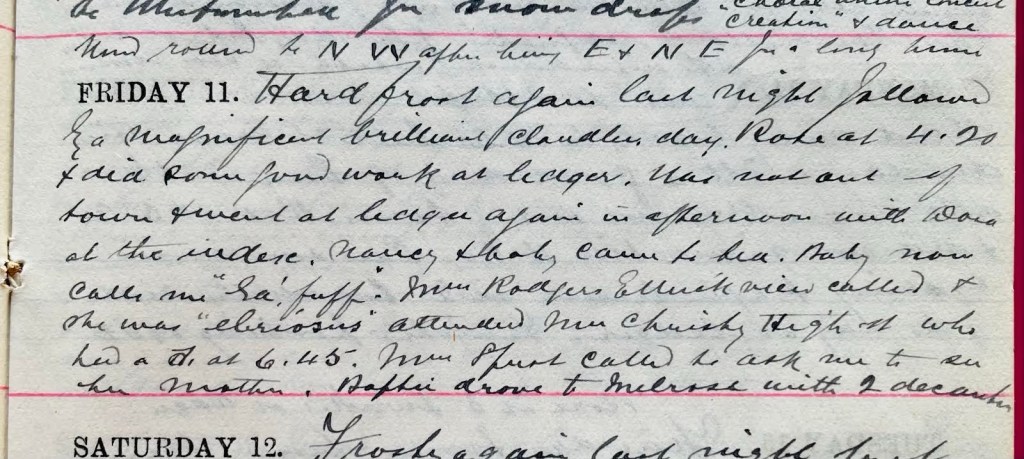 be for snow drops "choral
creation" & dance
Wind round to N W after being E & N E for a long time
FRIDAY 11. Hard frost again last night followed
by a magnificent brilliant cloudless day. Rose at 4.20
& did some good work at ledger. Was not out of
town & went at ledger again in afternoon with Dora
at the index. Nancy & baby came to tea. Baby now
calls me "Ga', fuff". Mrs Rodgers Ettrickview called &
she was "ebriosus" attended Mrs Christy High St who
had a d. at 6.45. Mrs called to ask me to see
her mother. drove to Melrose with 2 decanters
SATURDAY 12. Frost again last night